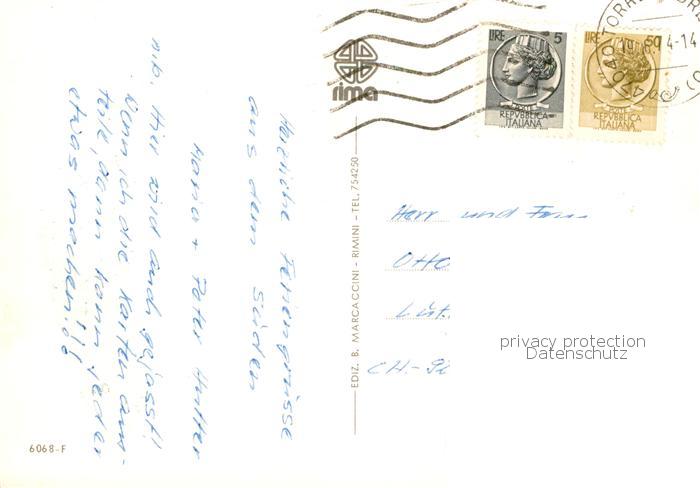 Herzliche Feriengrüsse
aus dem Süden
Maria + Peter Hutter
NB. Hier wird auch gejasst!
Wenn ich die Karten aus-
teile, dann kann jeder
etwas machen!!!
rima
LIRE 5
REPVBBLICA
ITALIANA
LIRE 50
REPVBBLICA
ITALIANA
EDIZ. B. MARCACCINI - RIMINI - TEL. 754250
Herr und Frau
Otto
CH-
privacy protection
Datenschutz
6068-F